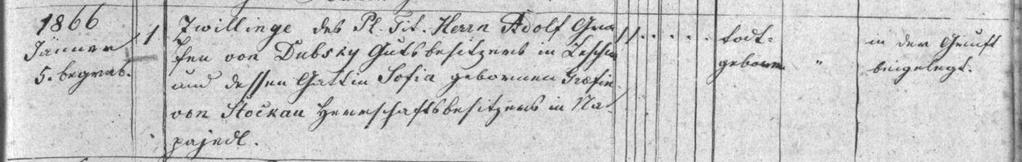 1866
Jänner
5. begrab.
1
Zwillinge des Pl. Tit. Herrn Adolf Gra
fen von Dubsky Gutsbesitzers in
und dessen Gattin Sofia gebornen Gräfin
von Stockau Herrschaftsbesitzers in Na
pajedl.
11 . . . . .
todt-
geboren
"
in der Gruft
beigelegt.